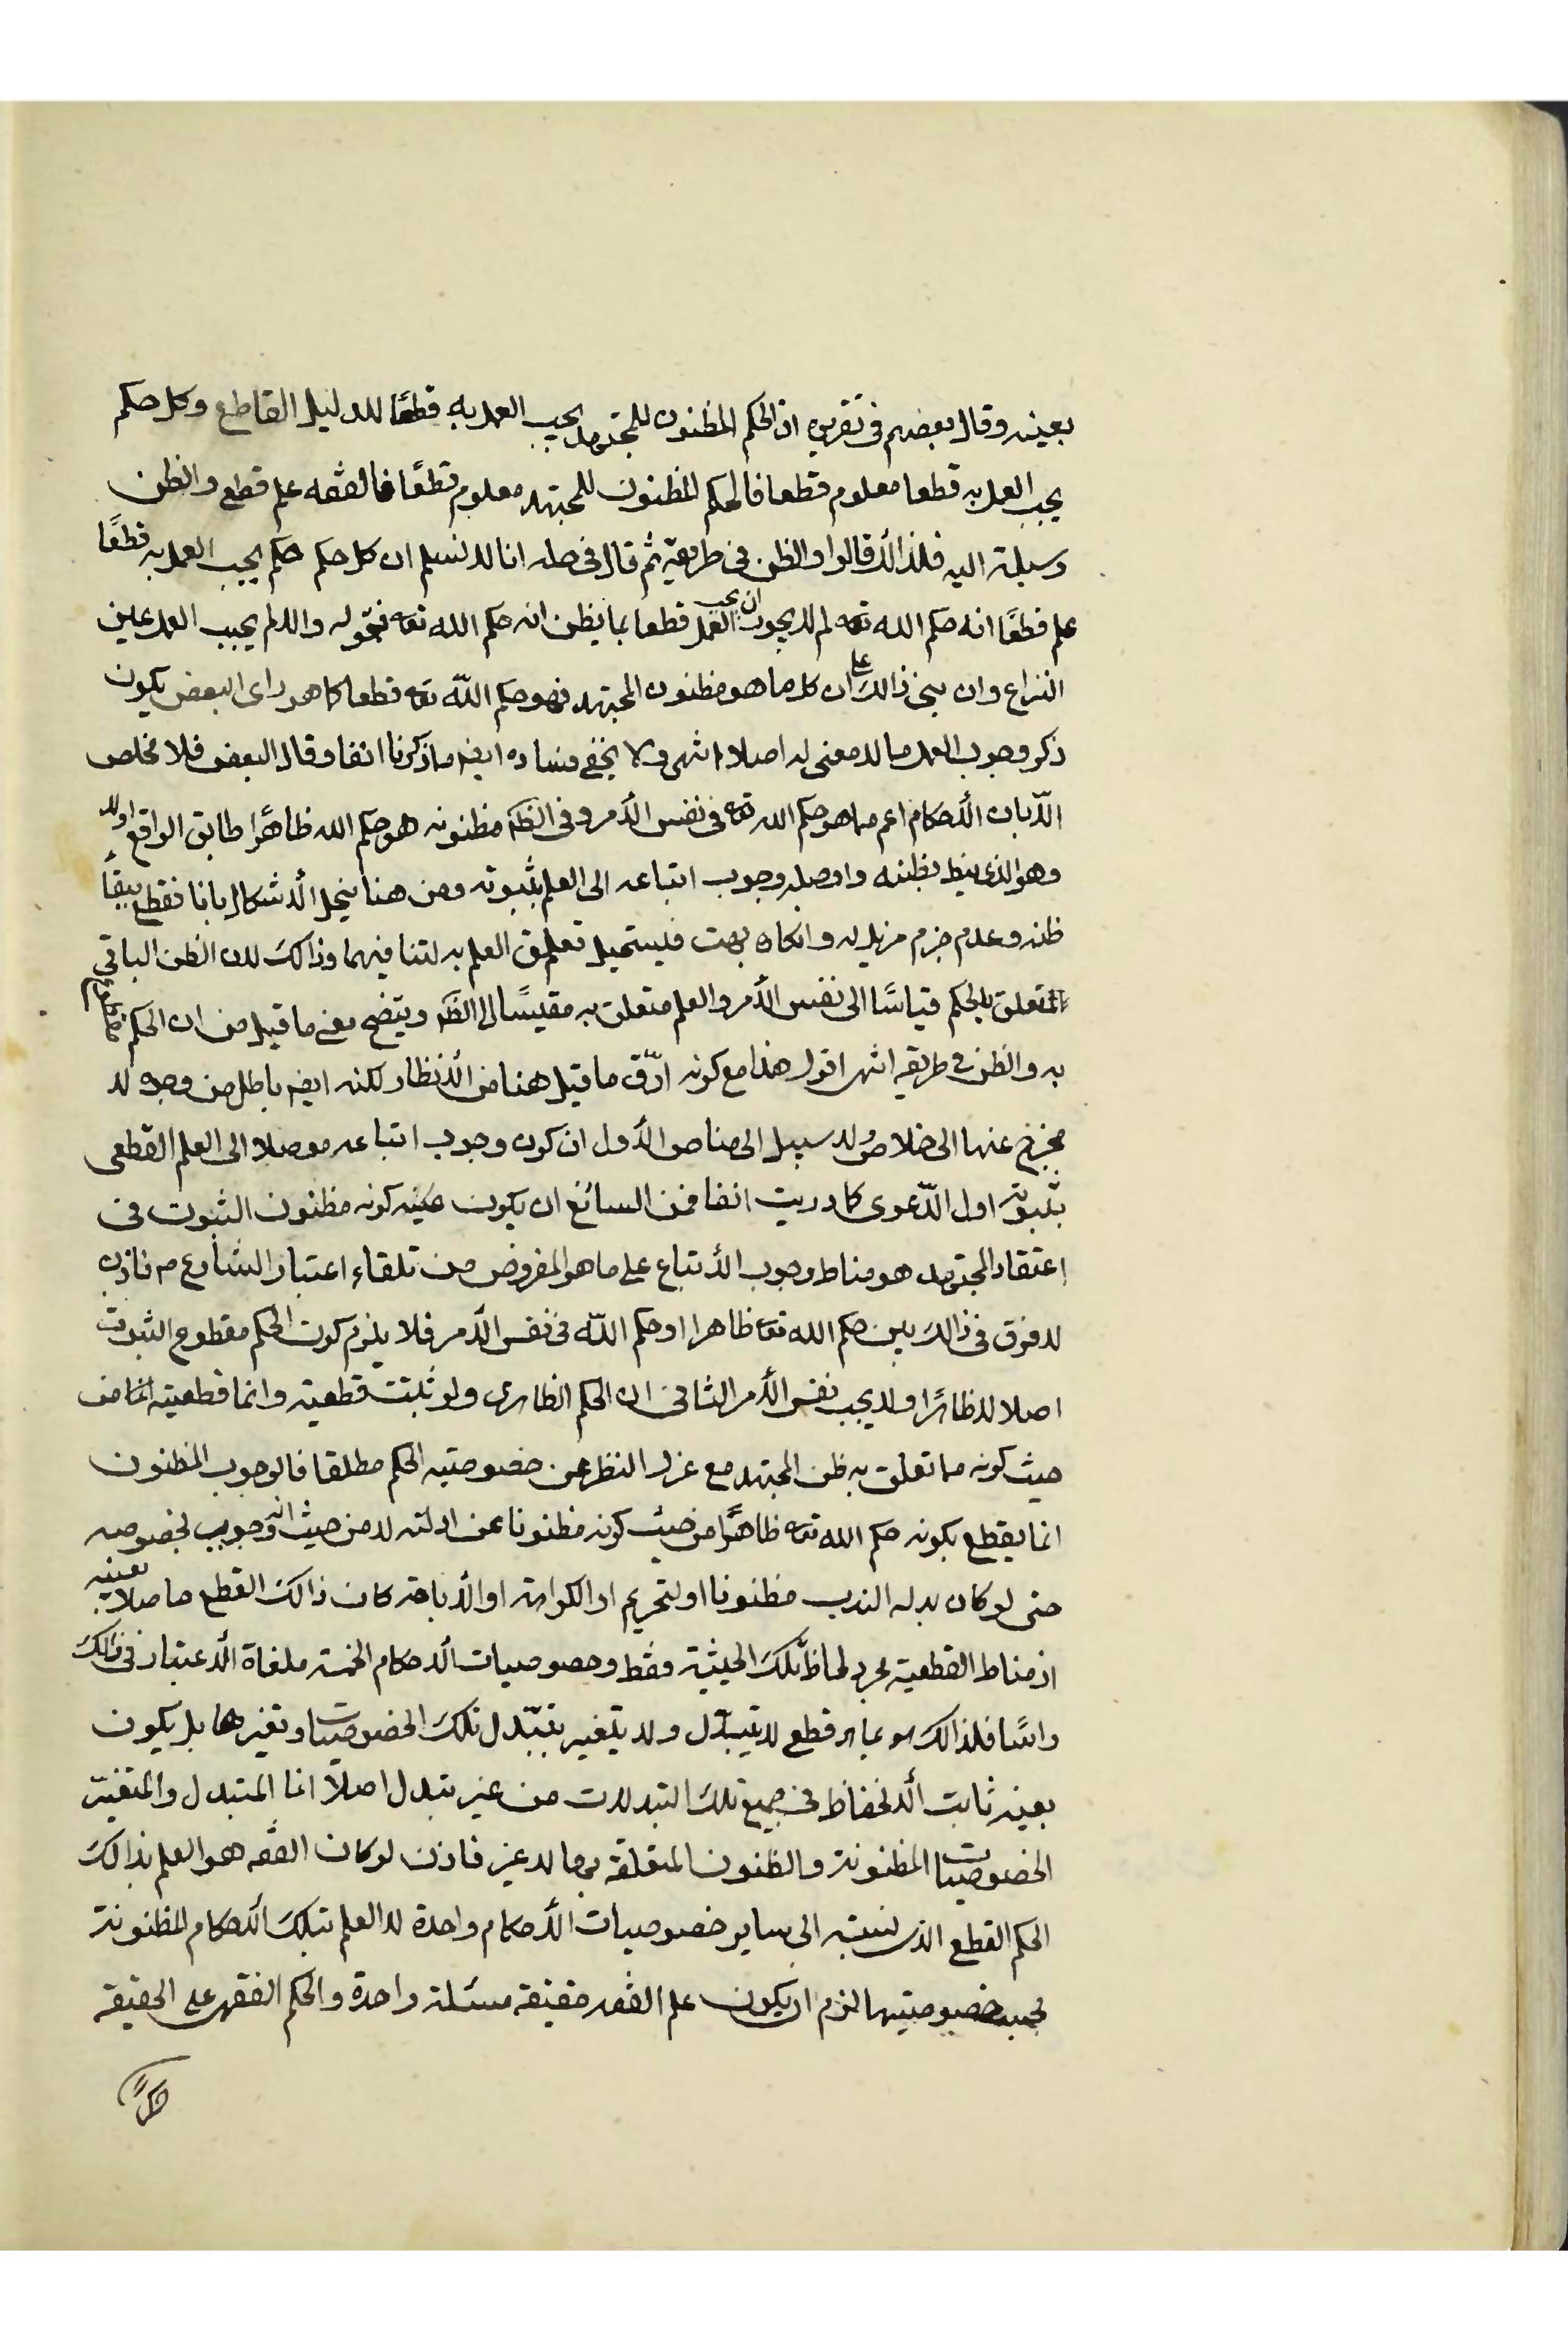 بعينه وقال بعضهم فى تقريره ان الحكم المظنون للمجتهد يجب العمل به قطعًا للدليل القاطع وكل حكم
يجب العمل به قطعا معلوم قطعا فالحكم المظنون للمجتهد معلوم قطعًا فالفقه علم قطعي والظن
وسيلة اليه فلذالك قالوا والظن فى طريقه ثم قال فى حله انا لا نسلم ان كل حكم حكم يجب العمل به قطعًا
علم قطعًا انه حكم الله تعه لم لا يجوز ان يجب العمل قطعا بما يظن انه حكم الله تعه فقوله والا لم يجب العمل عين
النزاع وان بنى ذالك على ان كل ما هو مظنون المجتهد فهو حكم الله تعه قطعا كما هو راى البعض يكون
ذكر وجوب العمل مما لا معنى له اصلا انتهى ولا يخفى فساده ايضا مما ذكرنا انفا وقال البعض فلا مخلص
الا بان الأحكام اعم مما هو حكم الله تعه فى نفس الأمر وفى الظه مظنونه هو حكم الله ظاهرًا طابق الواقع اولا
وهو الذى نيط بظنه واوصله وجوب اتباعه الى العلم بثبوته ومن هنا ينحل الأشكال بانا فقطع ببقأ
ظنه وعدم جزم مزيل له وانكاره بهت فيستحيل تعلق العلم به لتنافيهما وذالك لان الظن الباقى
المتعلق بالحكم قياسًا الى نفس الأمر والعلم متعلق به مقيسًا الى الظه ويتضح معنى ما قيل من ان الحكم مقطوع
به والظن فى طريقه انتهى اقول هذا مع كونه ادق ما قيل هنا من الأنظار لكنه ايضا باطل من وجوه لا
مخرج عنها الى خلاص ولا سبيل الى مناص الأول ان كون وجوب اتباعه موصلا الى العلم القطعى
بثبوته اول الدعوى كما دريت انفا فمن السائغ ان يكون حكمه كونه مظنون الثبوت فى
اعتقاد المجتهد هو مناط وجوب الأتباع على ما هو المفروض من تلقاء اعتبار الشارع م فاذن
لا فرق فى ذالك بين حكم الله تعه ظاهرا او حكم الله فى نفس الأمر فلا يلزم كون الحكم مقطوع الثبوت
اصلا لا ظاهرًا ولا بحسب نفس الأمر الثانى ان الحكم الظاهرى ولو ثبتت قطعيته وانما قطعيته انما من
حيث كونه مما تعلق به ظن المجتهد مع عزل النظر عن خصوصية الحكم مطلقا فالوجوب المظنون
انما يقطع بكونه حكم الله تعه ظاهرًا من حيث كونه مظنونا عن ادلته لا من حيث انه وجوب بخصوصه
حتى لو كان بدله الندب مظنونا او لتحريم او الكراهة او الأباحة كان ذالك القطع حاصلا بعينه
اذ مناط القطعية مجرد لحاظ تلك الحيثية فقط وخصوصيات الأحكام الخمسة ملغاة الأعتبار فى ذالك
راسًا فلذالك هو بما هو قطع لا يتبدل ولا يتغير بتبدل تلك الخصوصيات وتغيرها بل يكون
بعينه ثابت الأنحفاظ فى جميع تلك التبدلات من غير تبدل اصلاً انما المتبدل والمتغير
الخصوصيات المظنونة والظنون المتعلقة بها لا غير فاذن لو كان الفقه هو العلم بذالك
الحكم القطع الذى نسبته الى ساير خصوصيات الأحكام واحدة لا العلم بتلك الأحكام المظنونة
بحسب خصوصيتها لزم ان يكون علم الفقه حقيقة مسئلة واحدة والحكم الفقهى على الحقيقة